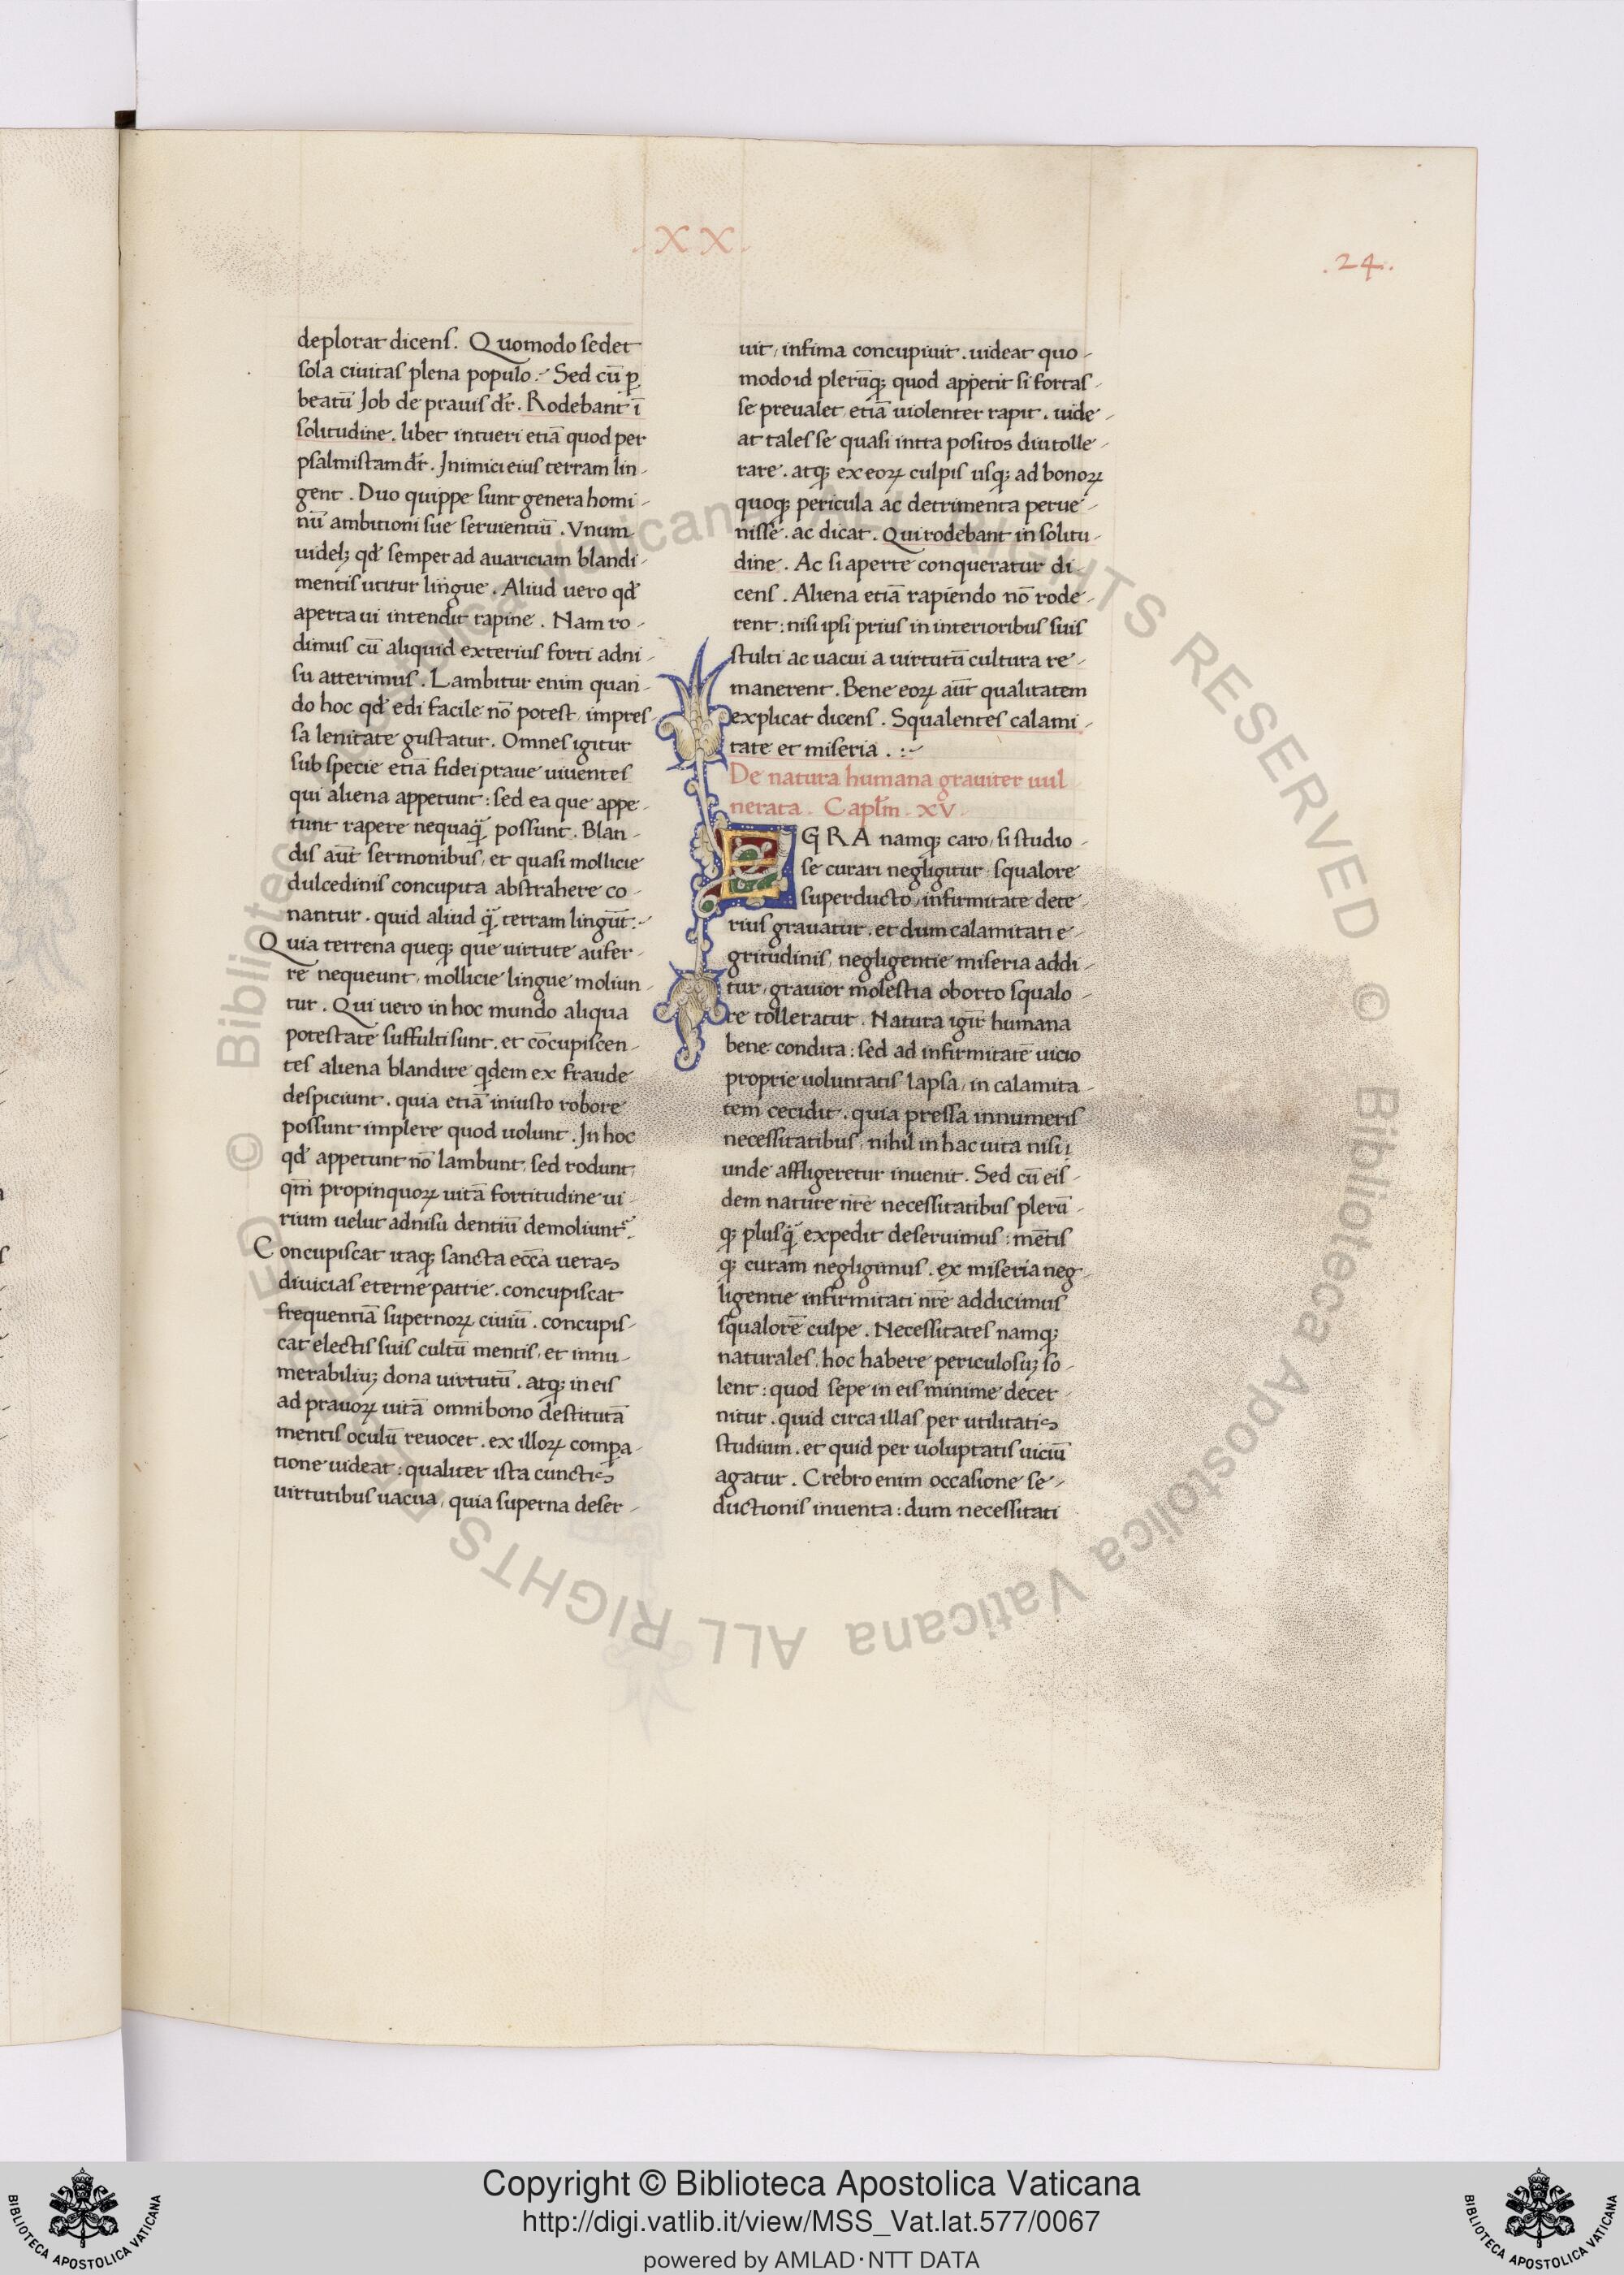 . X X .
. 24 .
deplorat dicens. Quomodo sedet
sola ciuitas plena populo. Sed cū p̱
beatū Job de prauis dr̄. Rodebant ī
solitudine. libet intueri etiā quod per
psalmistam dr̄. Inimici eius terram lin-
gent. Duo quippe sunt genera homi-
nū ambitioni sue seruientiū. Vnum
uidelꝫ qd̄ semper ad auariciam blandi-
mentis utitur lingue. Aliud uero qd̄
aperta ui intendit rapine. Nam ro-
dimus cū aliquid exterius forti adni-
su atterimus. Lambitur enim quan-
do hoc qd̄ edi facile nō potest, impres-
sa lenitate gustatur. Omnes igitur
sub specie etiā fidei praue uiuentes
qui aliena appetunt: sed ea que appe-
tunt rapere nequaq̄ possunt. Blan-
dis aūt sermonibus, et quasi mollicie
dulcedinis concupita abstrahere co-
nantur. quid aliud q̄ terram lingūt:
Quia terrena queqꝫ que uirtute aufer-
re nequeunt, mollicie lingue moliun-
tur. Qui uero in hoc mundo aliqua
potestate suffulti sunt. et cōcupiscen-
tes aliena blandire qdem ex fraude
despiciunt. quia etiā iniusto robore
possunt implere quod uolunt. In hoc
qd̄ appetunt nō lambunt, sed rodunt,
qm̄ propinquoꝝ uitā fortitudine ui-
rium uelut adnisu dentiū demoliunt᷑.
Concupiscat itaqꝫ sancta ecc̄a ueras
diuicias eterne patrie. concupiscat
frequentiā supernoꝝ ciuiū. concupis-
cat electis suis cultū mentis, et innu-
merabiliuꝫ dona uirtutū. atqꝫ in eis
ad prauoꝝ uitā omni bono destitutā
mentis oculū reuocet. ex illoꝝ comp̱a-
tione uideat: qualiter ista cunctis
uirtutibus uacua, quia superna deser-
uit, infima concupiuit. uideat quo-
modo id plerūqꝫ quod appetit si fortas-
se preualet, etiā uiolenter rapit. uide-
at tales se quasi intra positos diu tolle-
rare. atqꝫ ex eoꝝ culpis usqꝫ ad bonoꝝ
quoqꝫ pericula ac detrimenta perue-
nisse. ac dicat. Qui rodebant in solitu-
dine. Ac si aperte conqueratur di-
cens. Aliena etiā rapiendo nō rode-
rent: nisi ipsi prius in interioribus suis
stulti ac uacui a uirtutū cultura re-
manerent. Bene eoꝝ aūt qualitatem
explicat dicens. Squalentes calami-
tate et miseria. :-
De natura humana grauiter uul
nerata. Capl̄m. xv.
EGRA namqꝫ caro, si studio-
se curari negligitur, squalore
superducto, infirmitate dete-
rius grauatur. et dum calamitati e-
gritudinis, negligentie miseria addi-
tur, grauior molestia oborto squalo-
re tolleratur. Natura igit̄ humana
bene condita: sed ad infirmitatē uicio
proprie uoluntatis lapsa, in calamita-
tem cecidit. quia pressa innumeris
necessitatibus, nihil in hac uita nisi
unde affligeretur inuenit. Sed cū eis-
dem nature nr̄e necessitatibus plerū-
qꝫ plusq̄ expedit deseruimus: mētis
qꝫ curam negligimus. ex miseria neg-
ligentie infirmitati nr̄e addicimus
squalorē culpe. Necessitates namqꝫ
naturales, hoc habere periculosuꝫ so-
lent: quod sepe in eis minime decer-
nitur. quid circa illas per utilitatis
studium. et quid per uoluptatis uiciū
agatur. Crebro enim occasione se-
ductionis inuenta: dum necessitati
© Biblioteca Apostolica Vaticana ALL RIGHTS RESERVED © Biblioteca Apostolica Vaticana ALL RIGHTS RESERVED
Copyright © Biblioteca Apostolica Vaticana
http://digi.vatlib.it/view/MSS_Vat.lat.577/0067
powered by AMLAD·NTT DATA
BIBLIOTECA APOSTOLICA VATICANA
BIBLIOTECA APOSTOLICA VATICANA